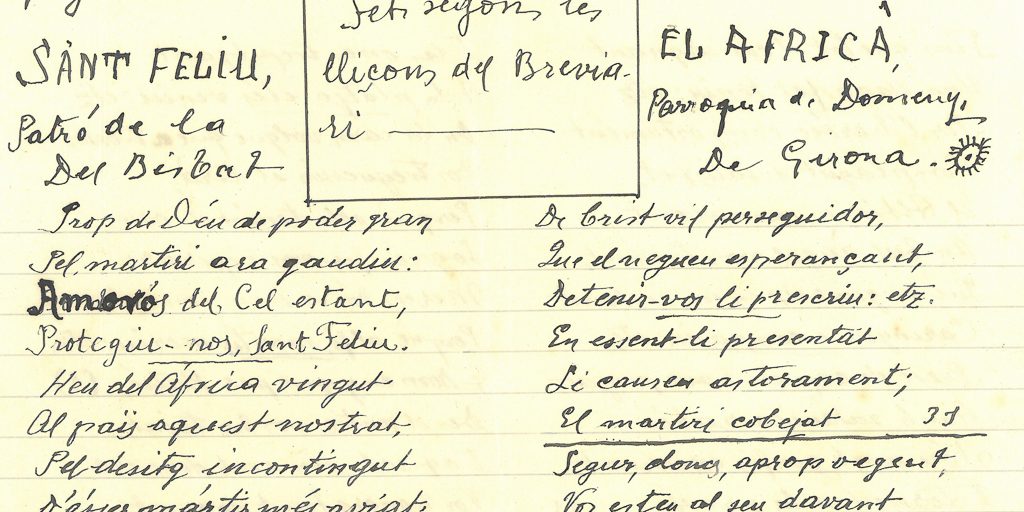 SÀNT FELIU,
Patró de la
Del Bisbat
Fets segons les
lliçons del Brevia-
ri
EL AFRICÀ,
Parroquia de Domeny,
De Girona.
Prop de Déu de poder gran
Pel martiri ara gaudiu:
Amorós del Cel estant,
Protegiu-nos, Sant Feliu.
Heu del Africa vingut
Al païs aquest nostrat,
Pel desitg incontingut
D'ésser mártir més aviat;
De Crist vil perseguidor,
Que el negueu esperançant,
Detenir-vos li prescriu: etz.
En essent-li presentat
Li causeu astorament;
El martiri cobejat 33
Segur, donç, aprop vegent,
Vos esteu al seu davant